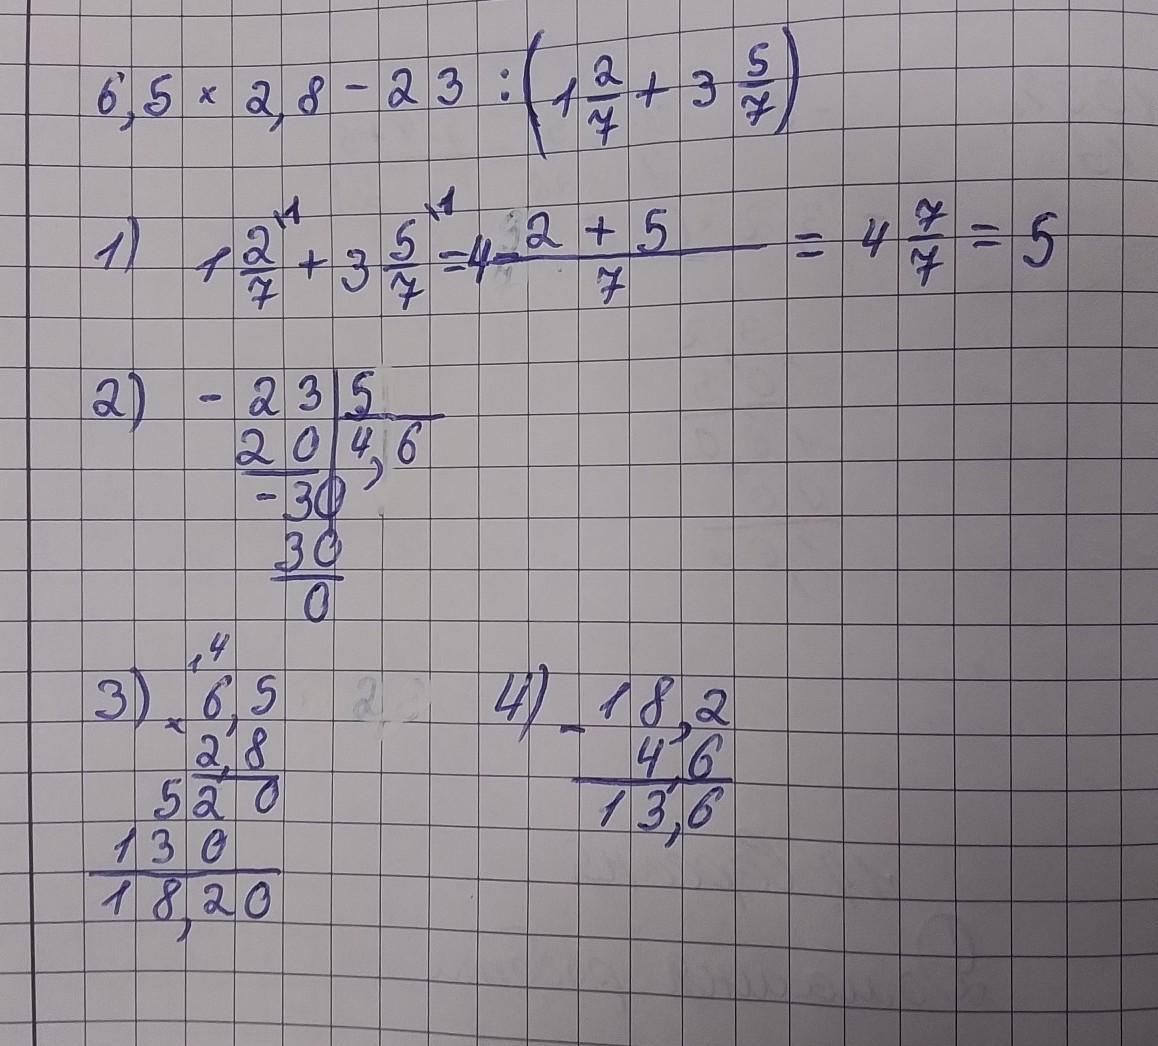 6,5 × 2,8 - 23 : (1 2/7 + 3 5/7)
1) 1 2/7 \1 + 3 5/7 \1 = 4 (2 + 5)/7 = 4 7/7 = 5
2) - 23 | 5
20 | 4,6
- 30
30
0
,4
3) × 6,5
2,8
520
130
18,20
4) - 18,2
4,6
13,6